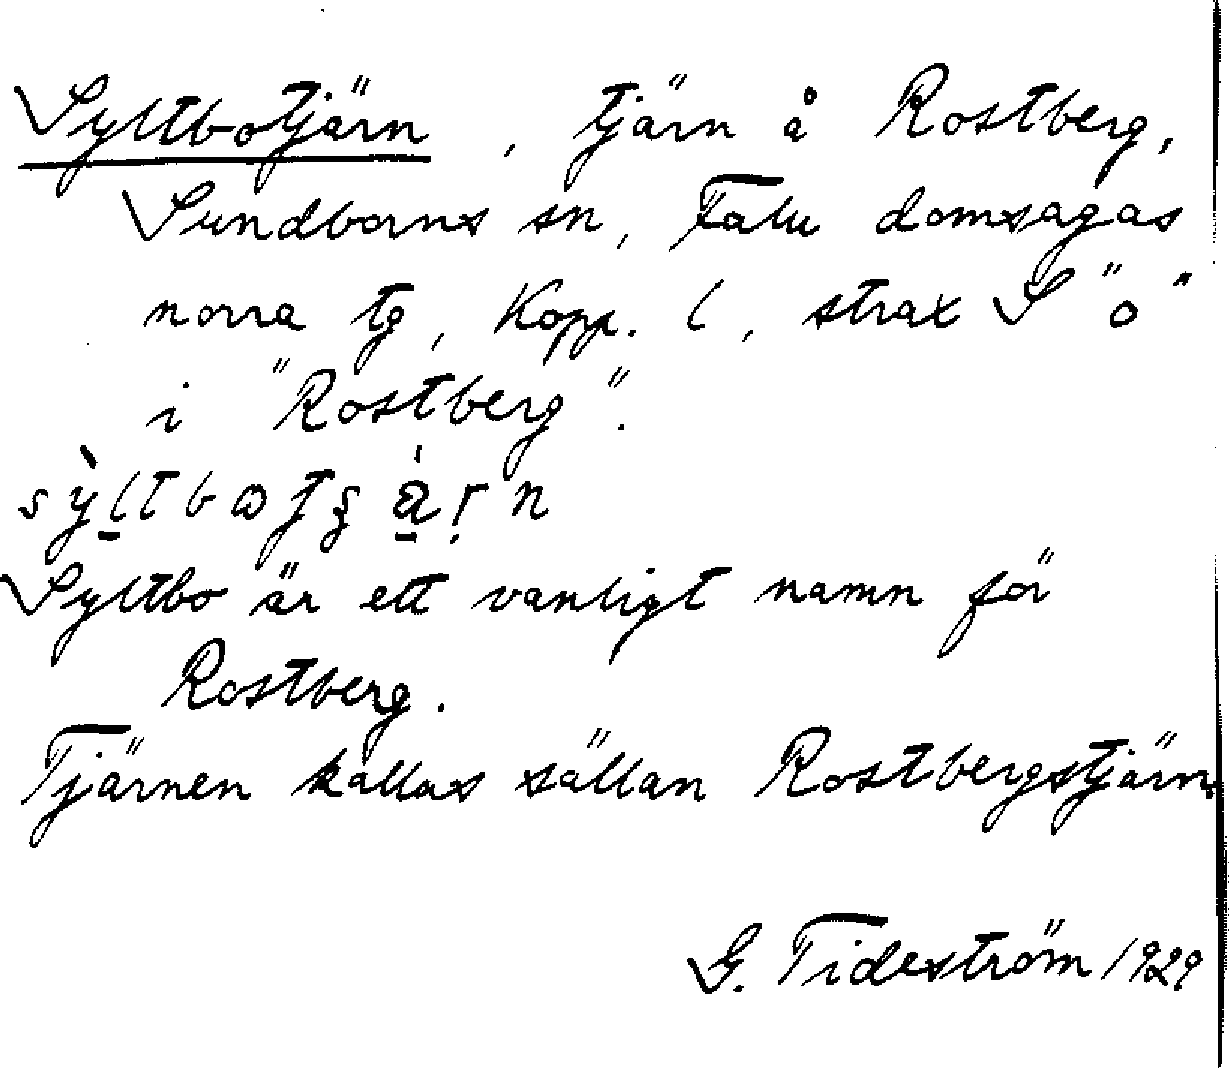 Syltbotjärn, tjärn å Rostberg,
Sundborns sn, Falu domsagas
norra tg, Kopp. l, strax S "o"
i "Rostberg".
Syltbo är ett vanligt namn för
Rostberg.
Tjärnen kallas sällan Rostbergstjärn.
G. Tideström 1929